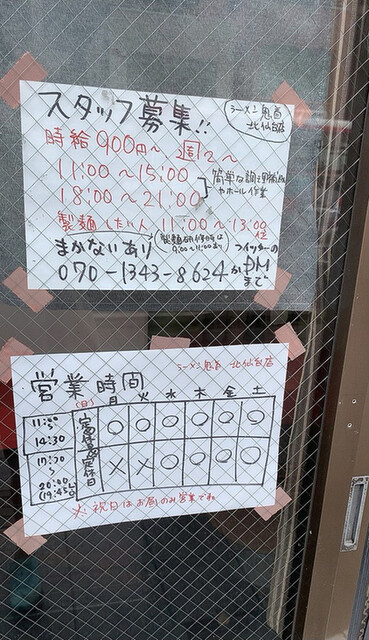 スタッフ募集!!
ラーメン鬼首
北仙台店
時給900円〜 週2〜
11:00〜15:00
18:00〜21:00
簡単な調理補助
やホール作業
製麺したい人 11:00〜13:00位
製麺研修時は
9:00〜11:00あり
まかないあり
ツイッターの
070-1343-8624かDM
まで
ラーメン鬼首 北仙台店
営業時間
(日) 月 火 水 木 金 土
11:30
〜
14:30
定休日 ○ ○ ○ ○ ○ ○
17:30
〜
20:00
(19:45LO)
定休日 × × ○ ○ ○ ○
※祝日はお昼のみ営業です。